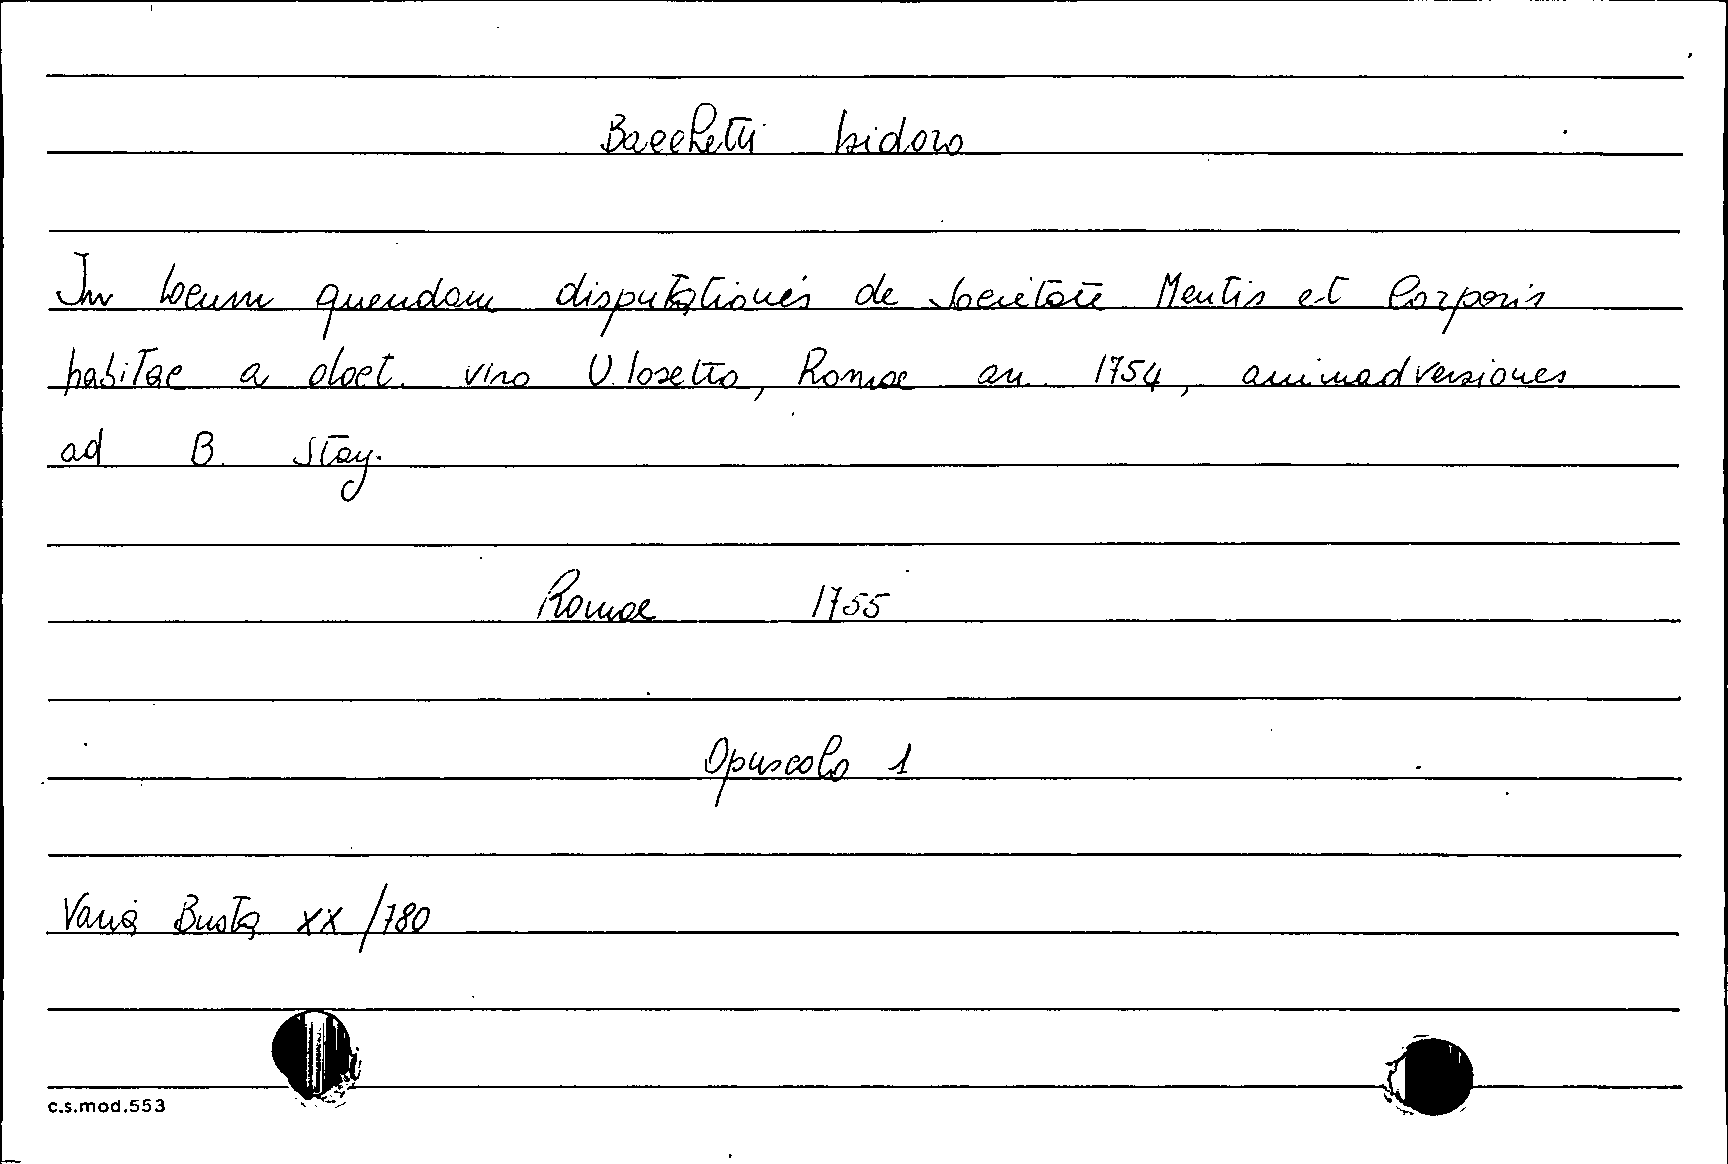 Bacchetti Isidoro
In locum quendam disputationis de Societate Mentis et Corporis
habitae a doct. viro U. Losetto, Romae an. 1754, animadversiones
ad B. Stay.
Romae 1755
Opuscolo 1
Varia Busta XX/780
c.s.mod.553